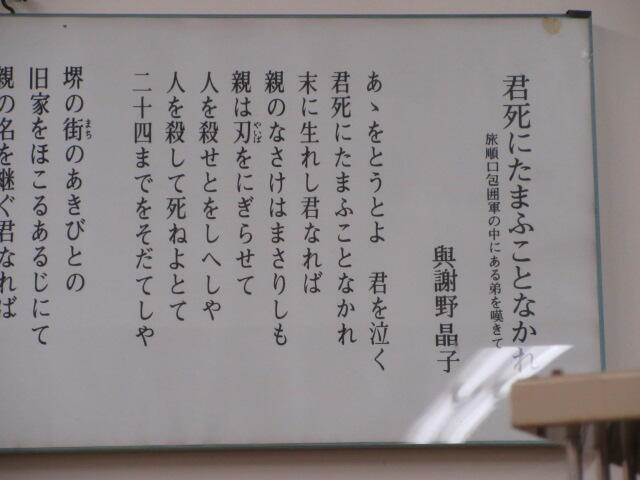 君死にたまふことなかれ
旅順口包囲軍の中にある弟を嘆きて
與謝野晶子
あゝをとうとよ 君を泣く
君死にたまふことなかれ
末に生れし君なれば
親のなさけはまさりしも
親は刃をにぎらせて
やいば
人を殺せとをしへしや
人を殺して死ねよとて
二十四までをそだてしや
堺の街のあきびとの
まち
旧家をほこるあるじにて
親の名を継ぐ君なれば